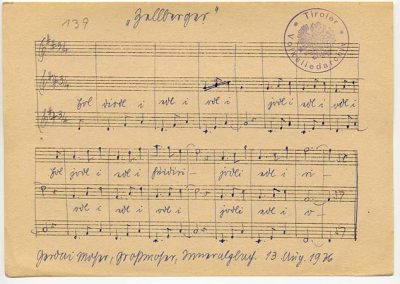 139
„Zellberger"
* Tiroler *
Volksliedarchiv
Hol diodl i edl i odl i jodl i edl i
Hol jodl i edl i hoidiri - jodli edl i ri -
odl i edl i odl i jodli edl i o -
Gerdai Moser, Großmoser, Inneralpbach. 13 Aug. 1926